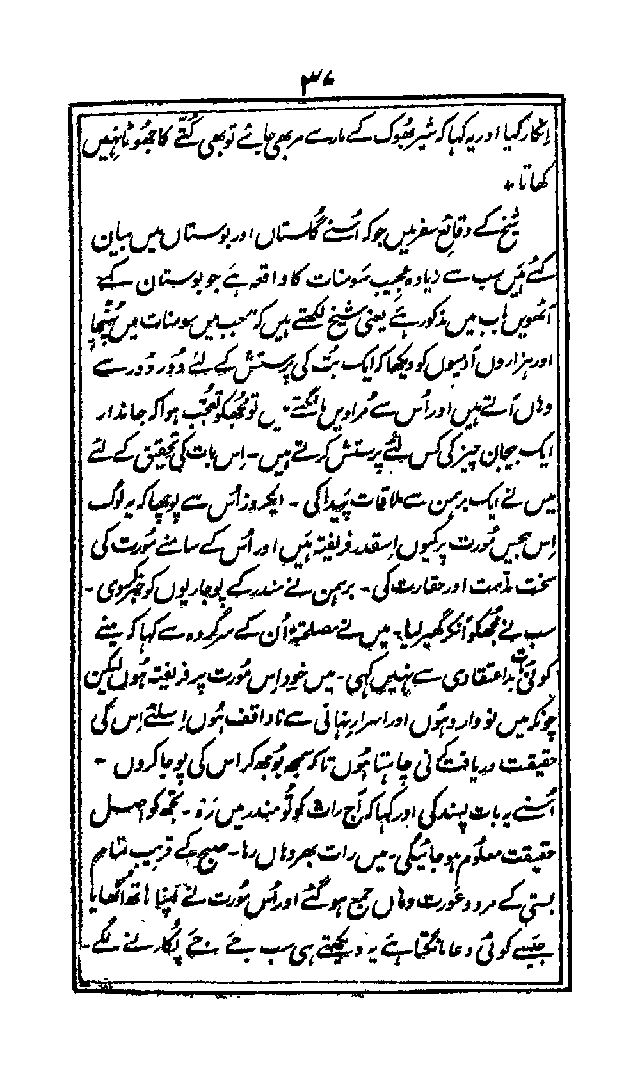 ۳۷
انکار کیا اور یہ کہا کہ شیر بھوک کے مارے مر بھی جائے تو بھی کتّے کا جھوٹا نہیں
کھاتا +
شیخ کے وقائع سفر میں جو کہ اُسنے گلستاں اور بوستاں میں بیان
کئے ہیں سب سے زیادہ عجیب سومنات کا واقعہ ہے جو بوستان کے
آٹھویں باب میں مذکور ہے یعنی شیخ لکھتے ہیں کہ جب میں سومنات میں پہنچا
اور ہزاروں آدمیوں کو دیکھا کہ ایک بُت کی پرستش کے لئے دُور دُور سے
وہاں آتے ہیں اور اُس سے مُرادیں مانگتے ہیں تو مجھکو تعجّب ہوا کہ جاندار
ایک بیجان چیز کی کس لئے پرستش کرتے ہیں - اِس بات کی تحقیق کے لئے
میں نے ایک برہمن سے ملاقات پیدا کی - ایکروز اُس سے پوچھا کہ یہ لوگ
اِس بےحس مُورت پر کیوں اِسقدر فریفتہ ہیں اور اُس کے سامنے مُورت کی
سخت مذمت اور حقارت کی - برہمن نے مندر کے پوجاریوں کو خبر کر دی -
سب نے مجھکو آنکر گھیر لیا - میں نے مصلحتہً اُن کے سرگروہ سے کہا کہ مینے
کوئی بات بد اعتقادی سے نہیں کہی - میں خود اِس مُورت پر فریفتہ ہُوں لیکن
چونکہ میں نو وارد ہُوں اور اسرار نہانی سے ناواقف ہُوں اِسلئے اِس کی
حقیقت دریافت کرنی چاہتا ہُوں تاکہ سمجھ بُوجھ کر اس کی پوجا کروں -
اُسنے یہ بات پسند کی اور کہا کہ آج رات کو تُو مندر میں رَہ - تجھ کو اصل
حقیقت معلُوم ہو جائیگی - میں رات بھر وہاں رہا - صبح کے قریب تمام
بستی کے مرد و عورت وہاں جمع ہو گئے اور اُس مُورت نے اپنا ہاتھ اُٹھایا
جیسے کوئی دعا مانگتا ہے یہ دیکھتے ہی سب جَے جَے پُکارنے لگے -